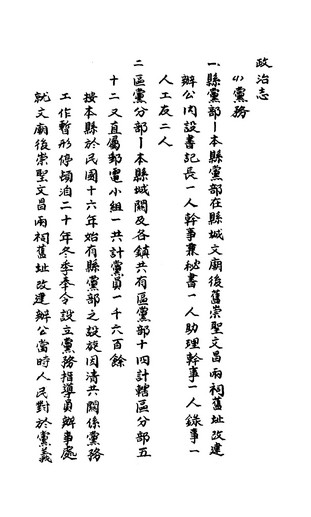 政治志
(1)黨務
一縣黨部—本縣黨部在縣城文廟後舊崇聖文昌兩祠舊址改建
辦公內設書記長一人幹事兼秘書一人助理幹事一人錄事一
人工友二人
二區黨分部—本縣城關及各鎮共有區黨部十四計轄區分部五
十二又直屬郵電小組一共計黨員一千六百餘
按本縣於民國十六年始有縣黨部之設旋因清共關係黨務
工作暫形停頓洎二十年冬季奉令設立黨務指導員辦事處
就文廟後崇聖文昌兩祠舊址改建辦公當時人民對於黨義